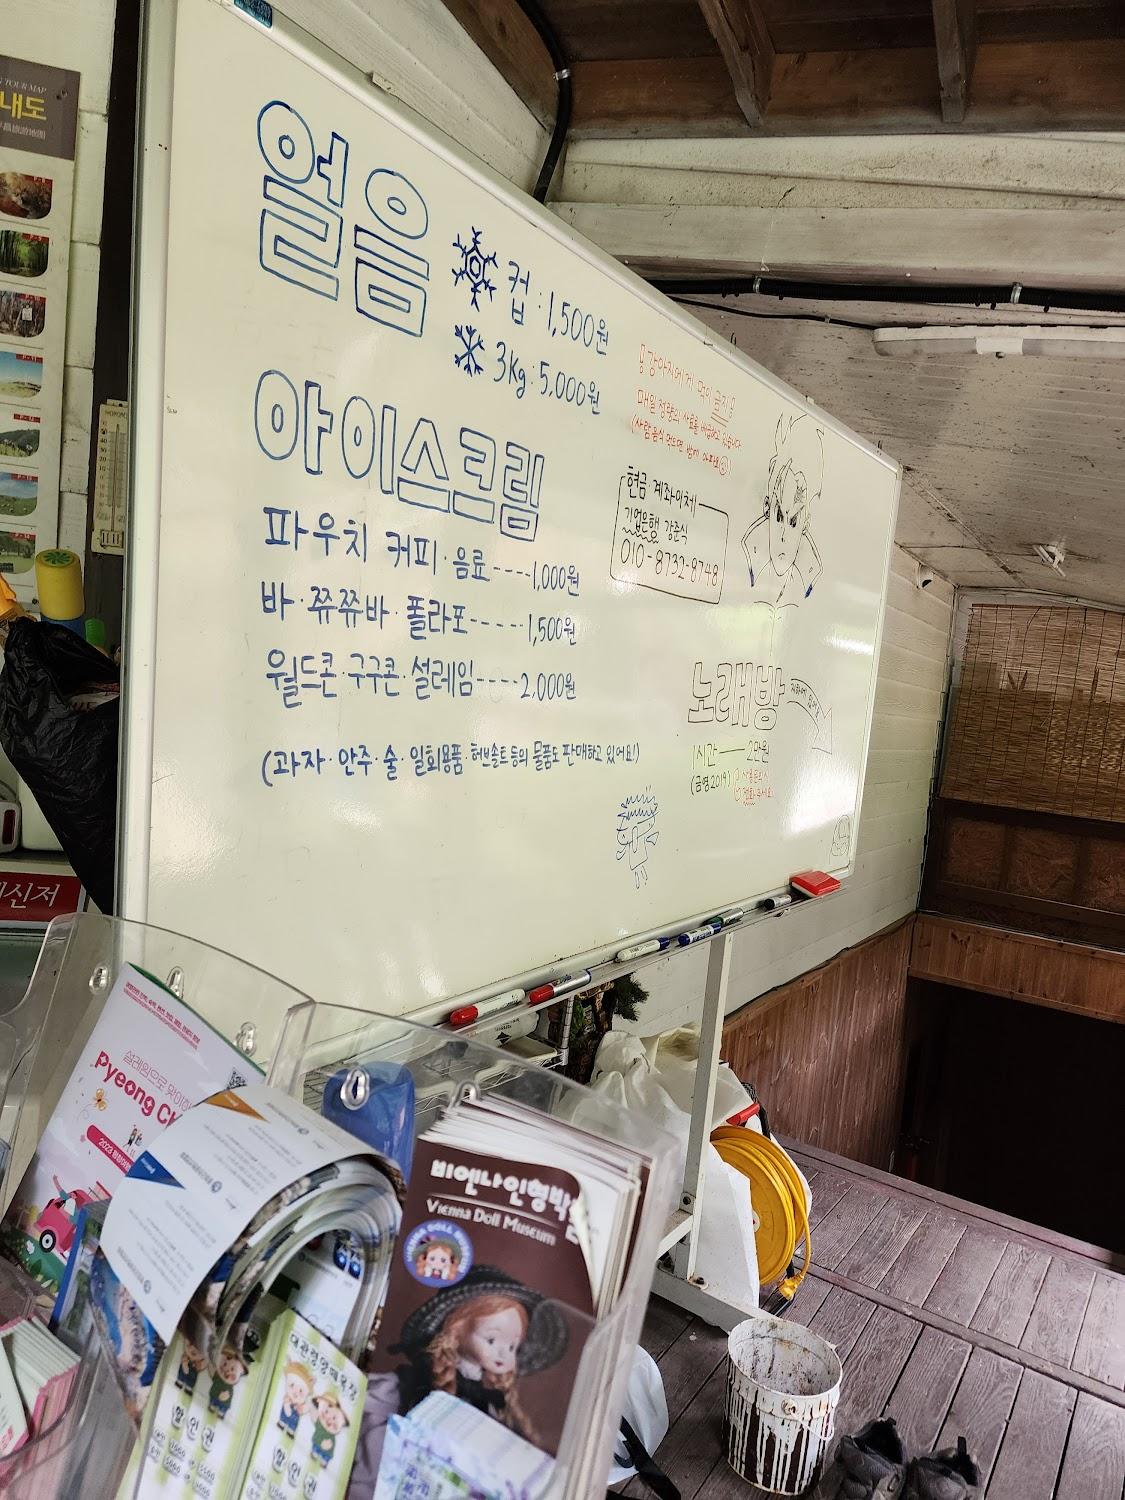 얼음
컵 : 1,500원
3kg · 5,000원
아이스크림
파우치 커피 · 음료 ---- 1,000원
바 · 쮸쮸바 · 폴라포 ----- 1,500원
월드콘 · 구구콘 · 설레임 ---- 2,000원
(과자 · 안주 · 술 · 일회용품 · 허브솔트 등의 물품도 판매하고 있어요!)
강아지에게 먹이 금지
매일 정량의 사료를 배급하고 있습니다
(사람음식 먹으면 아파요
현금 계좌이체
기업은행 강준식
010-8732-8748
노래방
1시간 — 2만원
(금영2019)
TOUR MAP
내도
신저
Pyeong Ch
2023
비엔나인형박물
Vienna Doll Museum
대관령양떼목장
할인권
할인권